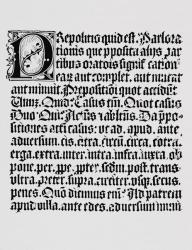 Prepositio quid est. Pars ora
tionis que pposita alijs par
tibus oratōis significatiōn
eaꝝ aut complet. aut mutat
aut minuit. Prepositiōi quot accidūt
Unū. Quid? Casus tm̄. Quot casus
Duo. Qui? ꝛ abltūs. Da pp̄o-
sitiones acti casus: vt ad. apud. ante.
aduersum. cis. citra. circū. circa. cōtra.
erga. extra. inter. intra. infra. iuxta. ob
pone. per. ꝓpe. ꝓpter. scdm. post. trans.
vltra. preter. supra. circiter. vsqꝫ. secus.
penes. Quō dicimus em̄? Ad patrem
apud villā. ante edes. aduersum